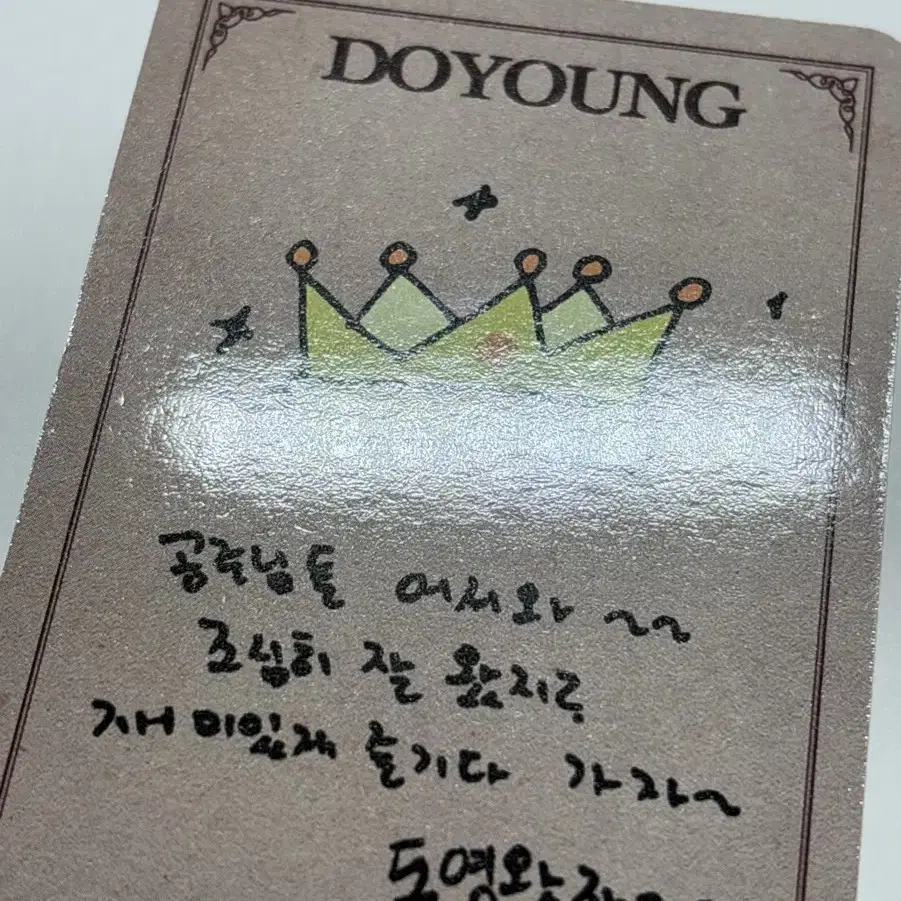 DOYOUNG
공주님들 어서와 ~~
조심히 잘 왔지?
재미있게 즐기다 가자~
도영왕자